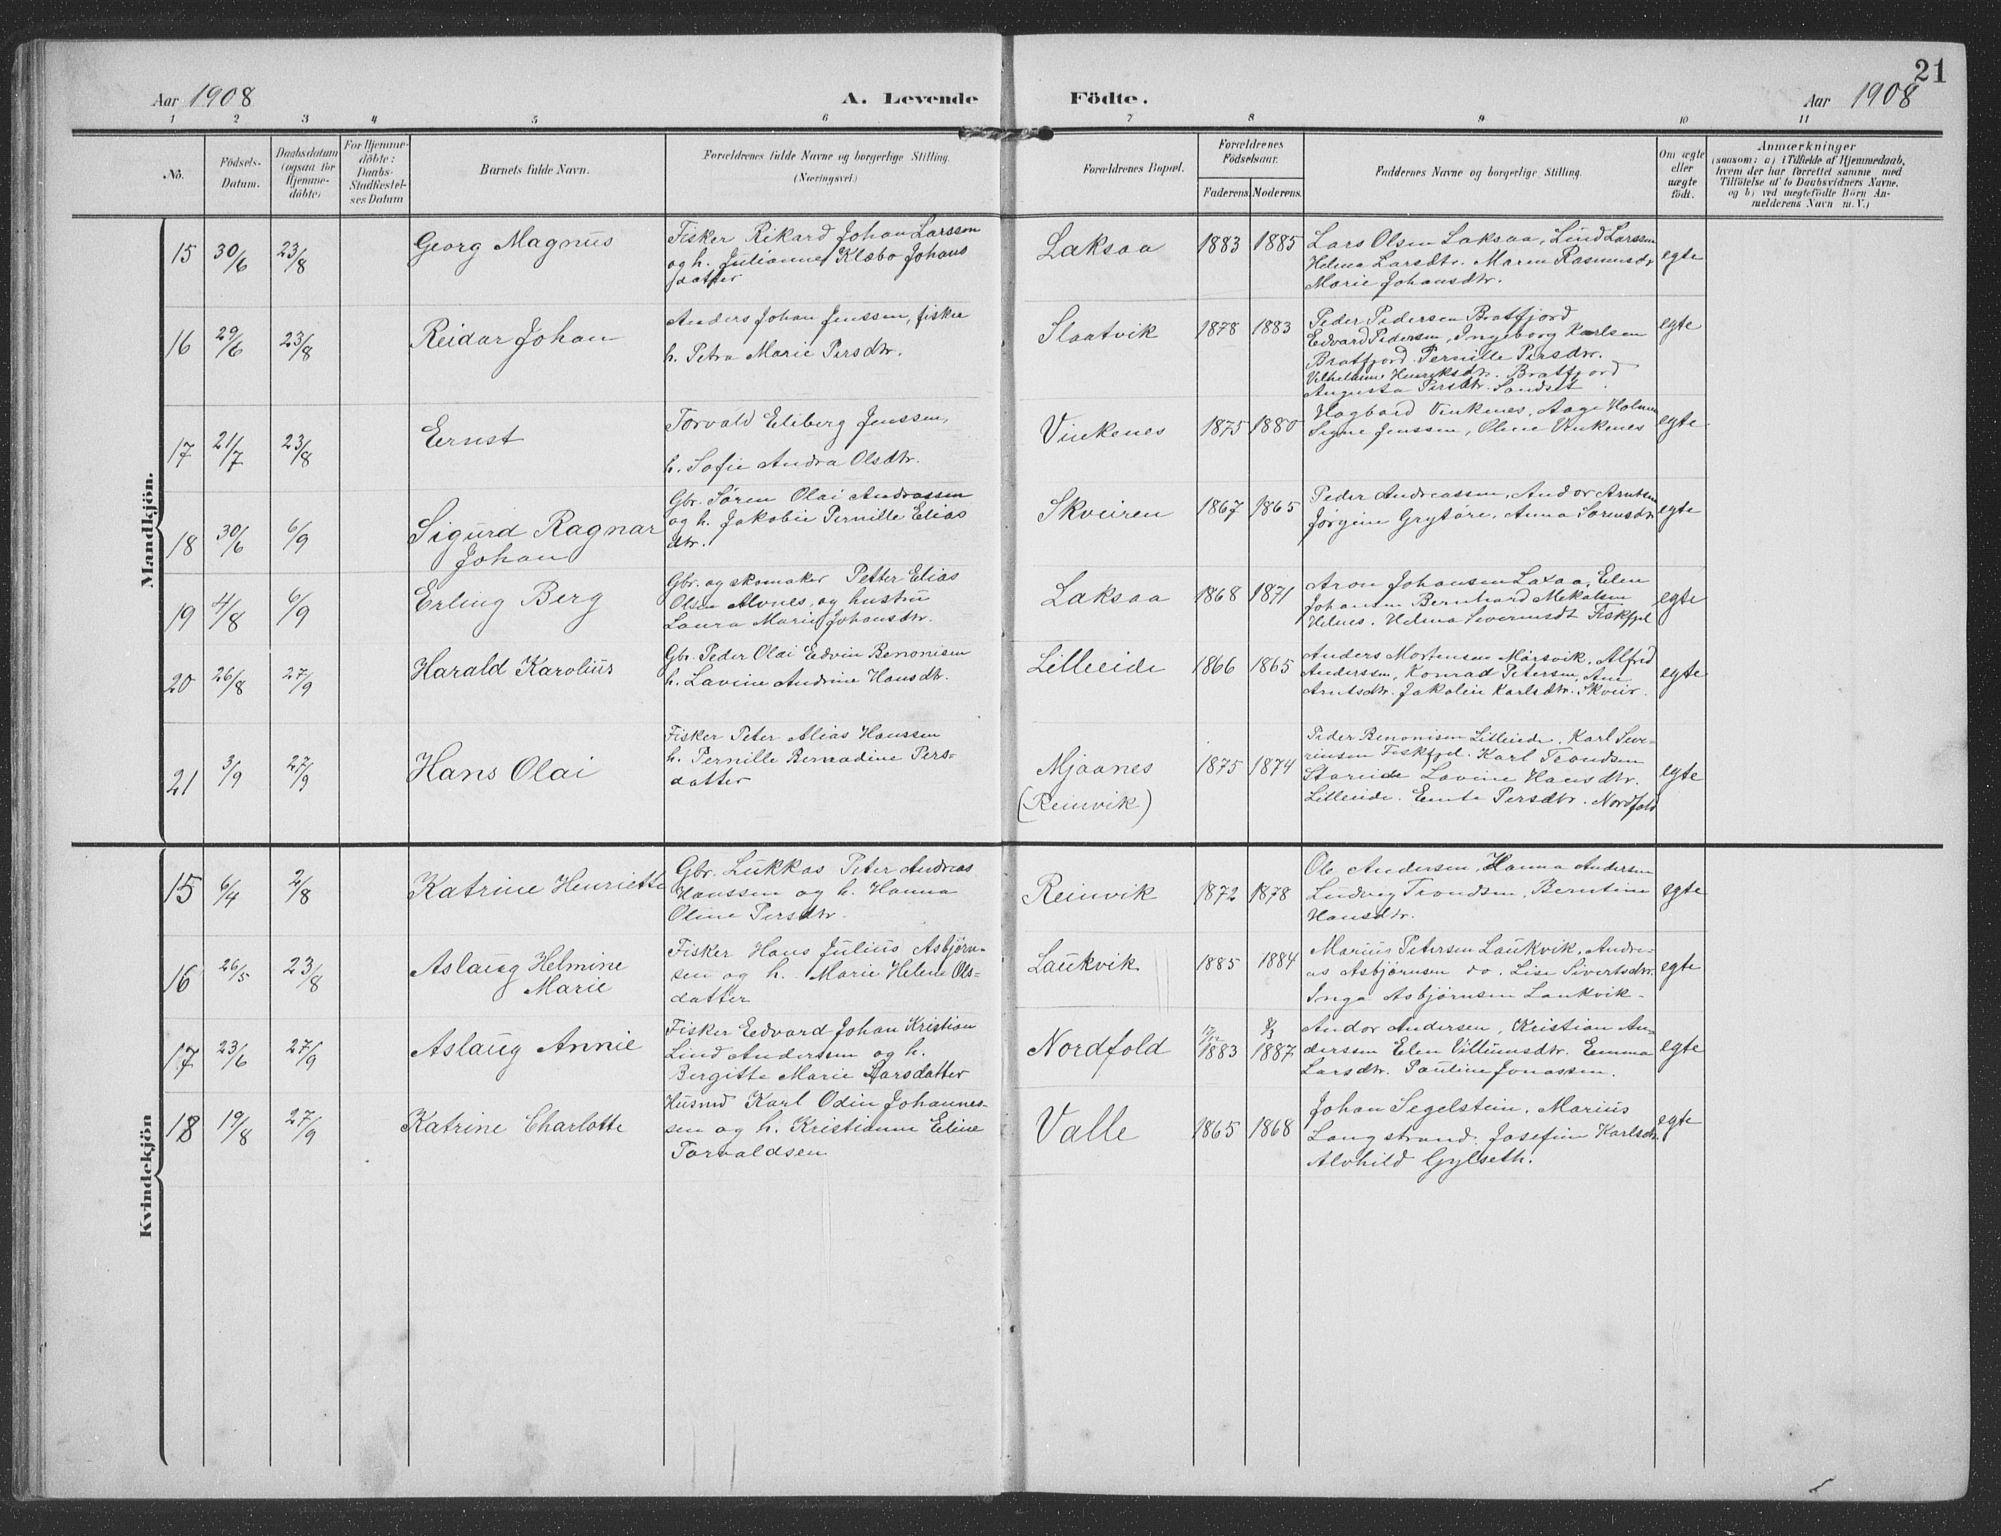 21
Aar 1908 A. Levende Födte. Aar 1908
1 2 3 4 5 6 7 8 9 10 11
No.
Födsels-
Datum.
Daabsdatum
(ogsaa for
Hjemme-
döbte)
For Hjemme-
döbte:
Daabs-
Stadfæstel-
ses Datum
Barnets fulde Navn.
Forældrenes fulde Navne og borgerlige Stilling.
(Næringsvei.)
Forældrenes Bopæl.
Forældrenes
Födselsaar.
Faderens Moderens.
Faddernes Navne og borgerlige Stilling.
Om ægte
eller
uægte
födt.
Anmærkninger
(saasom: a) i Tilfælde af Hjemmedaab,
hvem der har forrettet samme, med
Tilföielse af to Daabsvidners Navne.
og b) ved uegtefödte Börn An-
melderens Navn m. V.)
Mandkjön.
15 30/6 23/8 Georg Magnus
Fisker Rikard Johan Larssen
og h. Julianne Klæbo Johans
datter
Laksaa 1883 1885
Lars Olsen Laksaa, Lind Larssen
Helma Larsdtr. Maren Rasmusdtr
Marie Johansdtr.
egte
16 29/6 23/8 Reidar Johan
Anders Johan Jenssen, fisker
h. Petra Marie Persdtr.
Slaatvik 1878 1883
Peder Pedersen Bratfjord
Edvard Pedersen, Ingeborg Karlsen
Bratfjord. Pernille Persdtr.
Vilhelmine Henriksdtr. Bratfjord
Augusta Persdtr. Sandset.
egte
17 21/7 23/8 Ernst
Torvald Eliberg Jenssen,
h. Sofie Andra Olsdtr.
Vinkenes 1875 1880
Hagbard Vinkenes, Aage Holmen
Signe Jenssen, Oline Vinkenes
egte
18 30/6 6/9 Sigurd Ragnar
Johan
Gbr. Søren Olai Andreassen
og h. Jakobie Pernille Elias
dtr.
Skveiren 1867 1865
Peder Andreassen, Andor Arntsen
Jørgine Grytøre, Anna Sørensdtr
egte
19 4/8 6/9 Erling Berg
Gbr. og skomaker Petter Elias
Olsen Alvnes, og hustru
Laura Marie Johansdtr.
Laksaa 1868 1871
Aron Johansen Laxaa, Elen
Johansen Bernhard Mekalsen
Helnes. Helma Severinsdt Fiskfjel
egte
20 26/8 27/9 Harald Karolius
Gbr. Peder Olai Edvin Benonisen
h. Lavine Andrine Hansdtr.
Lilleeide 1866 1865
Anders Mortensen Mørsvik, Alfred
Anderssen, Konrad Petersen, Ane
Arntsdtr. Jakolin Karlsdtr. Skveir.
egte
21 3/9 27/9 Hans Olai
Fisker Peter Alias Hanssen
h. Pernille Bernadine Pers-
datter
Mjaanes
(Reinvik)
1875 1874
Peder Benonisen Lilleeide, Karl Seve-
rinsen Fiskfjel. Karl Trondsen
Storeide Lavine Hansdtr.
Lilleeide. Emte Persdtr. Nordfold
egte
Kvindekjön
15 6/4 2/8 Katrine Henriette
Gbr. Lukkas Peter Andreas
Hanssen og h. Hanna
Oline Persdtr.
Reinvik 1872 1878
Ole Andersen, Hanna Andersen
Ludvig Trondsen, Berntine
Hansdtr.
egte
16 26/5 23/8 Aslaug Helmine
Marie
Fisker Hans Julius Asbjørn-
sen og h. Marie Helene Ols-
datter
Laukvik 1885 1884
Marius Petersen Laukvik, Andre-
as Asbjørnsen do. Lise Sivertsdtr.
Inga Asbjørnsen Laukvik-
egte
17 23/6 27/9 Aslaug Annie
Fisker Edvard Johan Kristian
Lind Andersen og h.
Bergitte Marie Larsdatter
Nordfold 17/12 1883 8/3 1887
Andor Andersen, Kristian An-
derssen Elen Villumsdtr. Emma
Larsdtr. Pauline Jonassen.
egte
18 19/8 27/9 Katrine Charlotte
Husmd Karl Odin Johannes-
sen og h. Kristianne Eline
Torvaldsen
Valle 1865 1868
Johan Segelstein, Marius
Langstrand. Josefine Karlsdtr.
Alvhild Gylseth.
egte